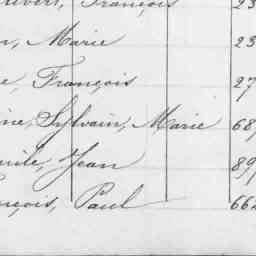 François 23
Marie 23
François 27
Sylvain, Marie 68
Jean 89
Paul 662